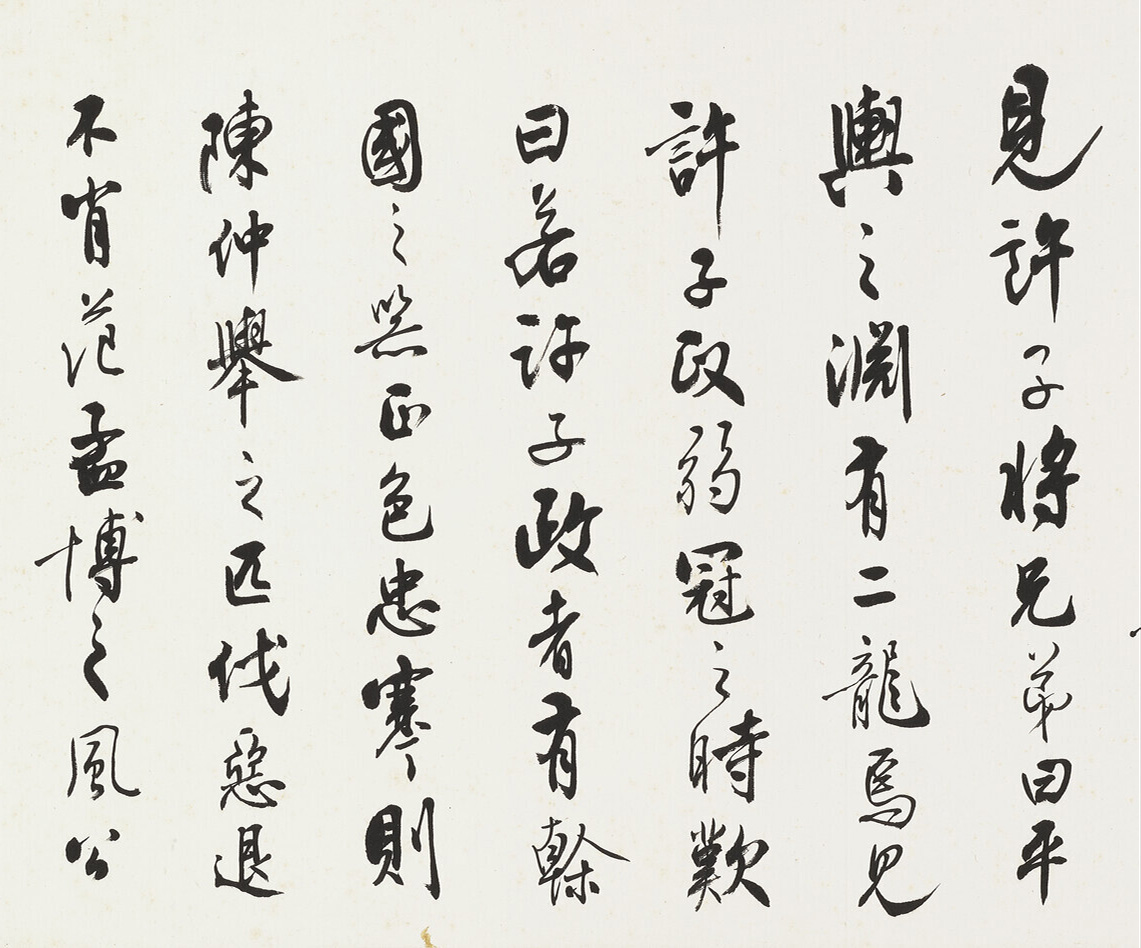 見許子將兄弟曰平
輿之淵有二龍焉見
許子政弱冠之時歎
曰若許子政者有幹
國之器正色忠謇則
陳仲舉之匹伐惡退
不肖范孟博之風公